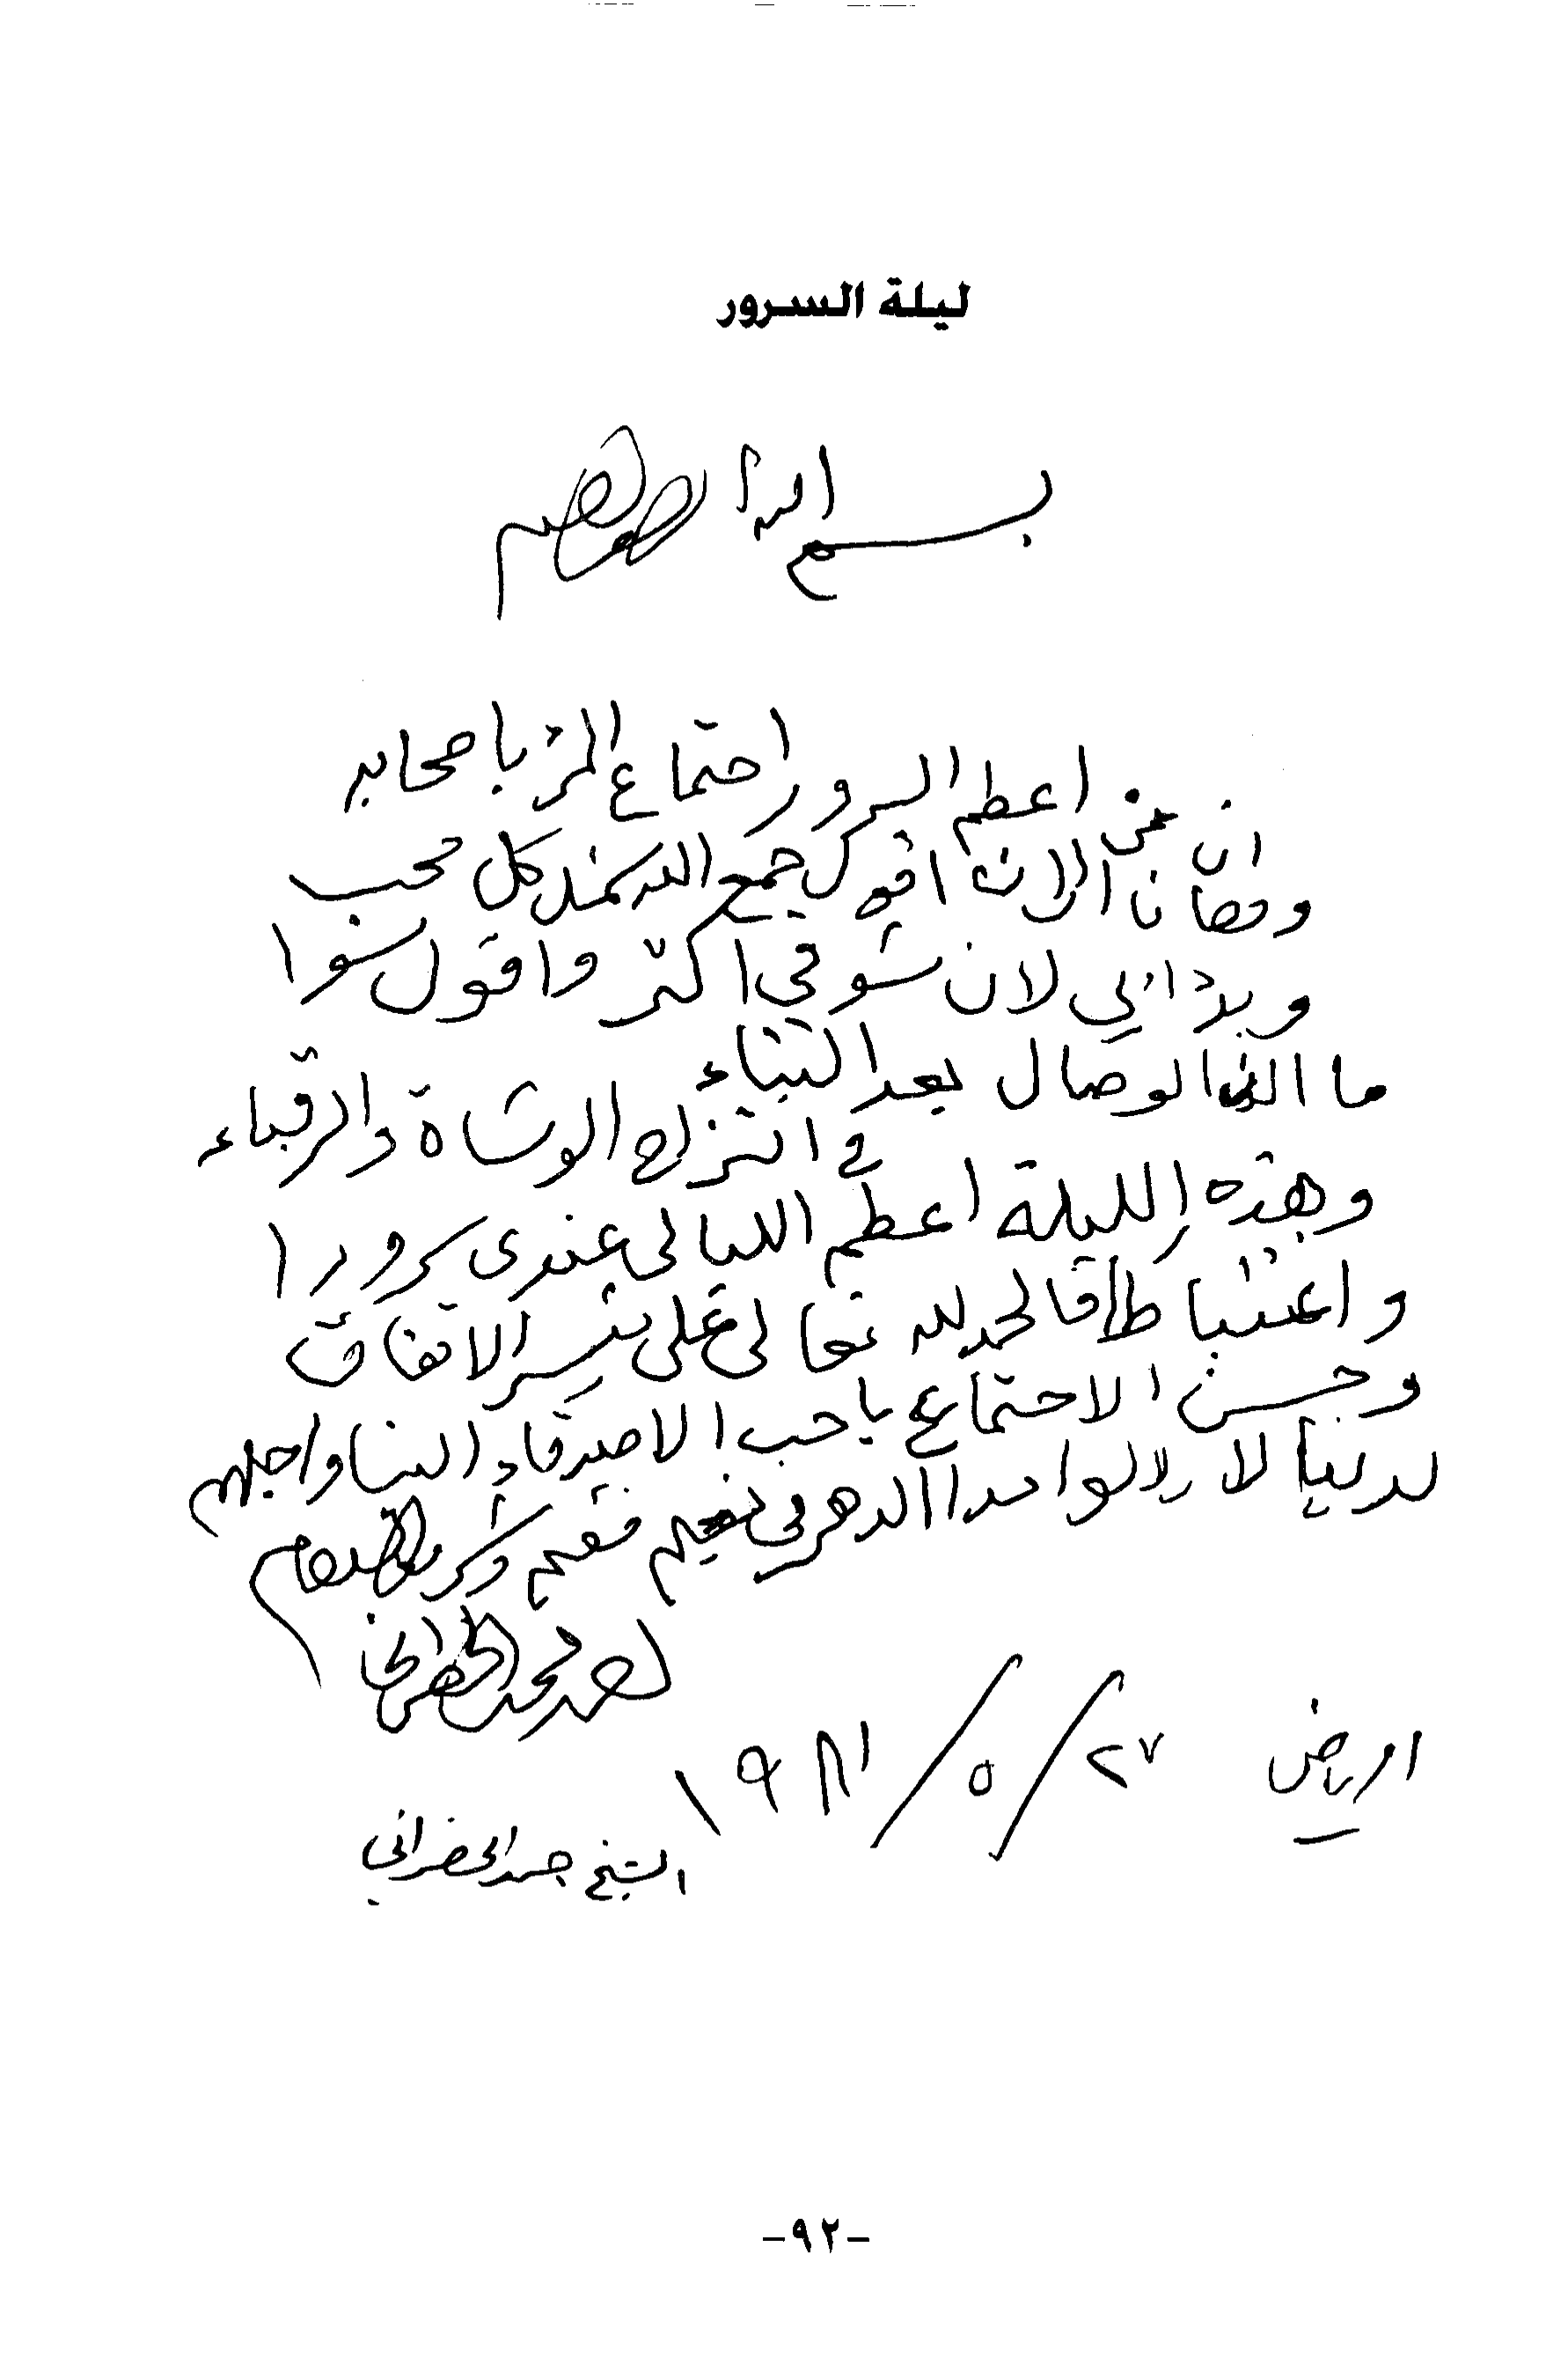 ليلة السرور
بسم الله الرحمن الرحيم
ان من اعظم السرور اجتماع المرء باصحابه
وها انا الان اقول جمع الله شمل كل محب
وبدا بي لان شوقي اكثر واقول
ما الذ الوصال بعد التنائي
في انتزاح الوشاة والرقباء
وهذه الليلة اعظم الليالي عندي سرورا
واغتباطا فالحمد لله تعالى على تيسر الاتفاق
وحسن الاجتماع باحب الاصدقاء الينا واجلهم
لدينا لا زالوا مدا الدهر في نعيم مقيم
حمد محمد الحضراني
الرياض ٢٧/٥/١٩٨١
الشيخ حمد الحضراني
-٩٢-